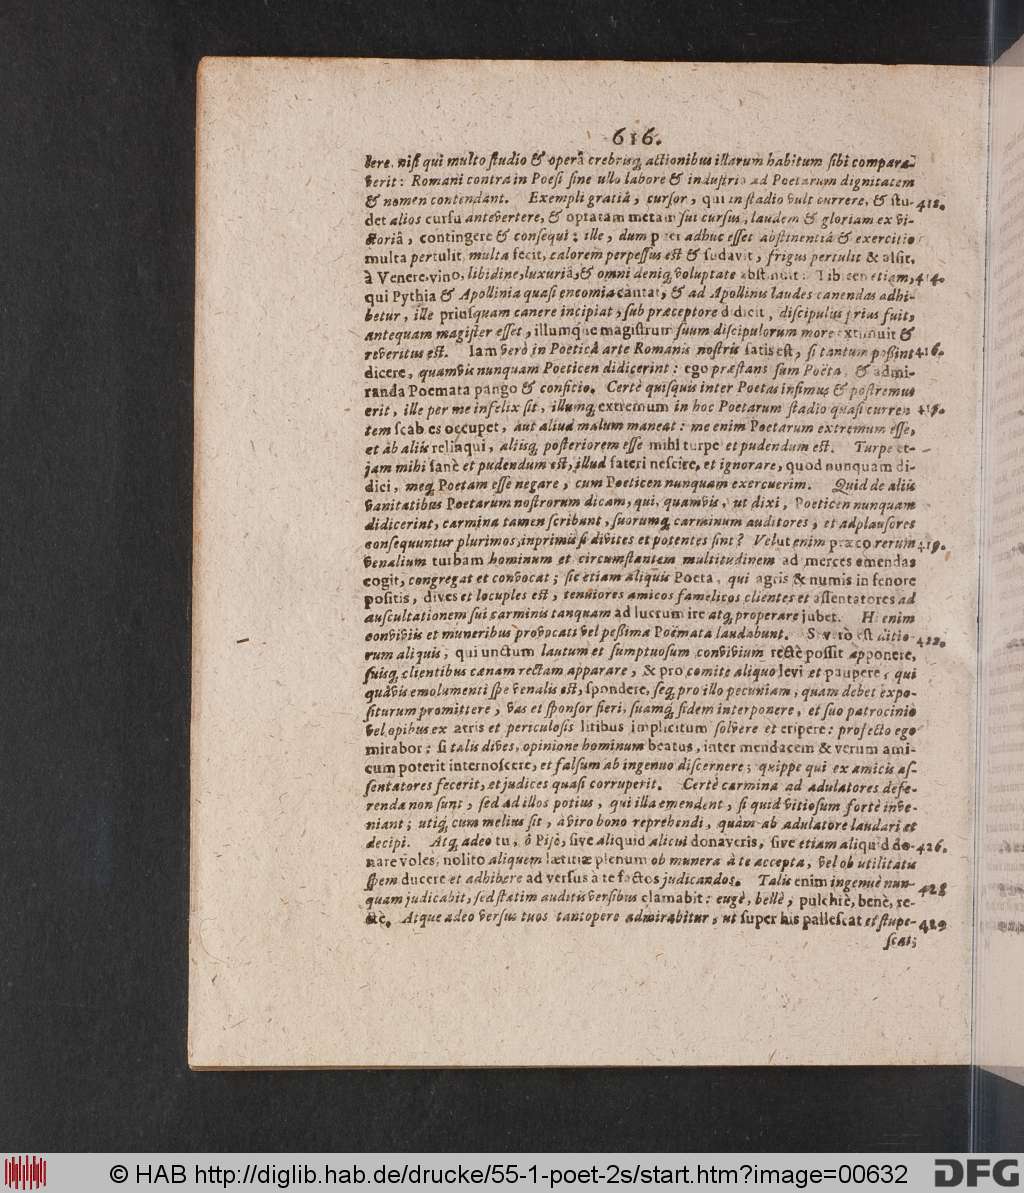 616.
bere, nisi qui multo studio & operâ crebrisq́ actionibus illarum habitum sibi compara-
verit: Romani contra in Poesi sine ullo labore & industria ad Poetarum dignitatem
& nomen contendant. Exempli gratiâ, cursor, qui in stadio vult currere, & stu- 412.
det alios cursu antevertere, & optatam metam sui cursus, laudem & gloriam ex vi-
ctoriâ, contingere & consequi: ille, dum puer adhuc esset abstinentiâ & exercitio
multa pertulit, multa fecit, calorem perpessus est & sudavit, frigus pertulit & alsit,
à Venere, vino, libidine, luxuriâ, & omni deniq́ voluptate abstinuit. Tibicen etiam, 414.
qui Pythia & Apollinia quasi encomia cantat, & ad Apollinis laudes canendas adhi-
betur, ille priusquam canere incipiat, sub præceptore didicit, discipulus prius fuit,
antequam magister esset, illumque magistrum suum discipulorum more extimuit &
reveritus est. Iam verò in Poeticâ arte Romanis nostris satis est, si tantum possint 416.
dicere, quamvis nunquam Poeticen didicerint: ego præstans sum Poëta, & admi-
randa Poemata pango & conficio. Certè quisquis inter Poetas infimus & postremus
erit, ille per me infelix sit, illumq́ extremum in hoc Poetarum stadio quasi curren
tem scabies occupet, aut aliud malum maneat: me enim Poetarum extremum esse,
et ab aliis relinqui, aliisq́ posteriorem esse mihi turpe et pudendum est. Turpe et-
jam mihi sanè et pudendum est, illud fateri nescire, et ignorare, quod nunquam di-
dici, meq́ Poetam esse negare, cum Poeticen nunquam exercuerim. Quid de aliis
vanitatibus Poetarum nostrorum dicam, qui, quamvis, ut dixi, Poeticen nunquam
didicerint, carmina tamen scribunt, suorumq́ carminum auditores, et adplausores
consequuntur plurimos, inprimis si divites et potentes sint? Velut enim præco rerum 419.
venalium turbam hominum et circumstantem multitudinem ad merces emendas
cogit, congregat et convocat; sic etiam aliquis Poeta, qui agris & numis in fenore
positis, dives et locuples est, tenuiores amicos famelicos clientes et assentatores ad
auscultationem sui carminis tanquam ad lucrum ire atq́ properare jubet. Hi enim
conviviis et muneribus provocati vel pessima Poëmata laudabunt. Si verò est ditio- 422.
rum aliquis, qui unctum lautum et sumptuosum convivium rectè possit apponere,
suisq́ clientibus cænam rectam apparare, & pro comite aliquo levi et paupere, qui
quâvis emolumenti spe venalis est, spondere, seq́ pro illo pecuniam, quam debet expo-
siturum promittere, vas et sponsor fieri, suamq́ fidem interponere, et suo patrocinio
vel opibus ex atris et periculosis litibus implicitum solvere et eripere: profecto ego
mirabor: si talis dives, opinione hominum beatus, inter mendacem & verum ami-
cum poterit internoscere, et falsum ab ingenuo discernere; quippe qui ex amicis as-
sentatores fecerit, et judices quasi corruperit. Certè carmina ad adulatores defe-
renda non sunt, sed ad illos potius, qui illa emendent, si quid vitiosum fortè inve-
niant; utiq́ cum melius sit, à viro bono reprehendi, quàm ab adulatore laudari et
decipi. Atq́ adeo tu, ô Piso, sive aliquid alicui donaveris, sive etiam aliquid do- 426.
nare voles, nolito aliquem lætitiæ plenum ob munera à te accepta, vel ob utilitatis
spem ducere et adhibere ad versus à te factos judicandos. Talis enim ingenuè nun-
quam judicabit, sed statim auditis versibus clamabit: eugè, bellè, pulchrè, benè, re- 428
ctè. Atque adeo versus tuos tantopere admirabitur, ut super his pallescat et stupe- 429
scat;
© HAB http://diglib.hab.de/drucke/55-1-poet-2s/start.htm?image=00632
DFG